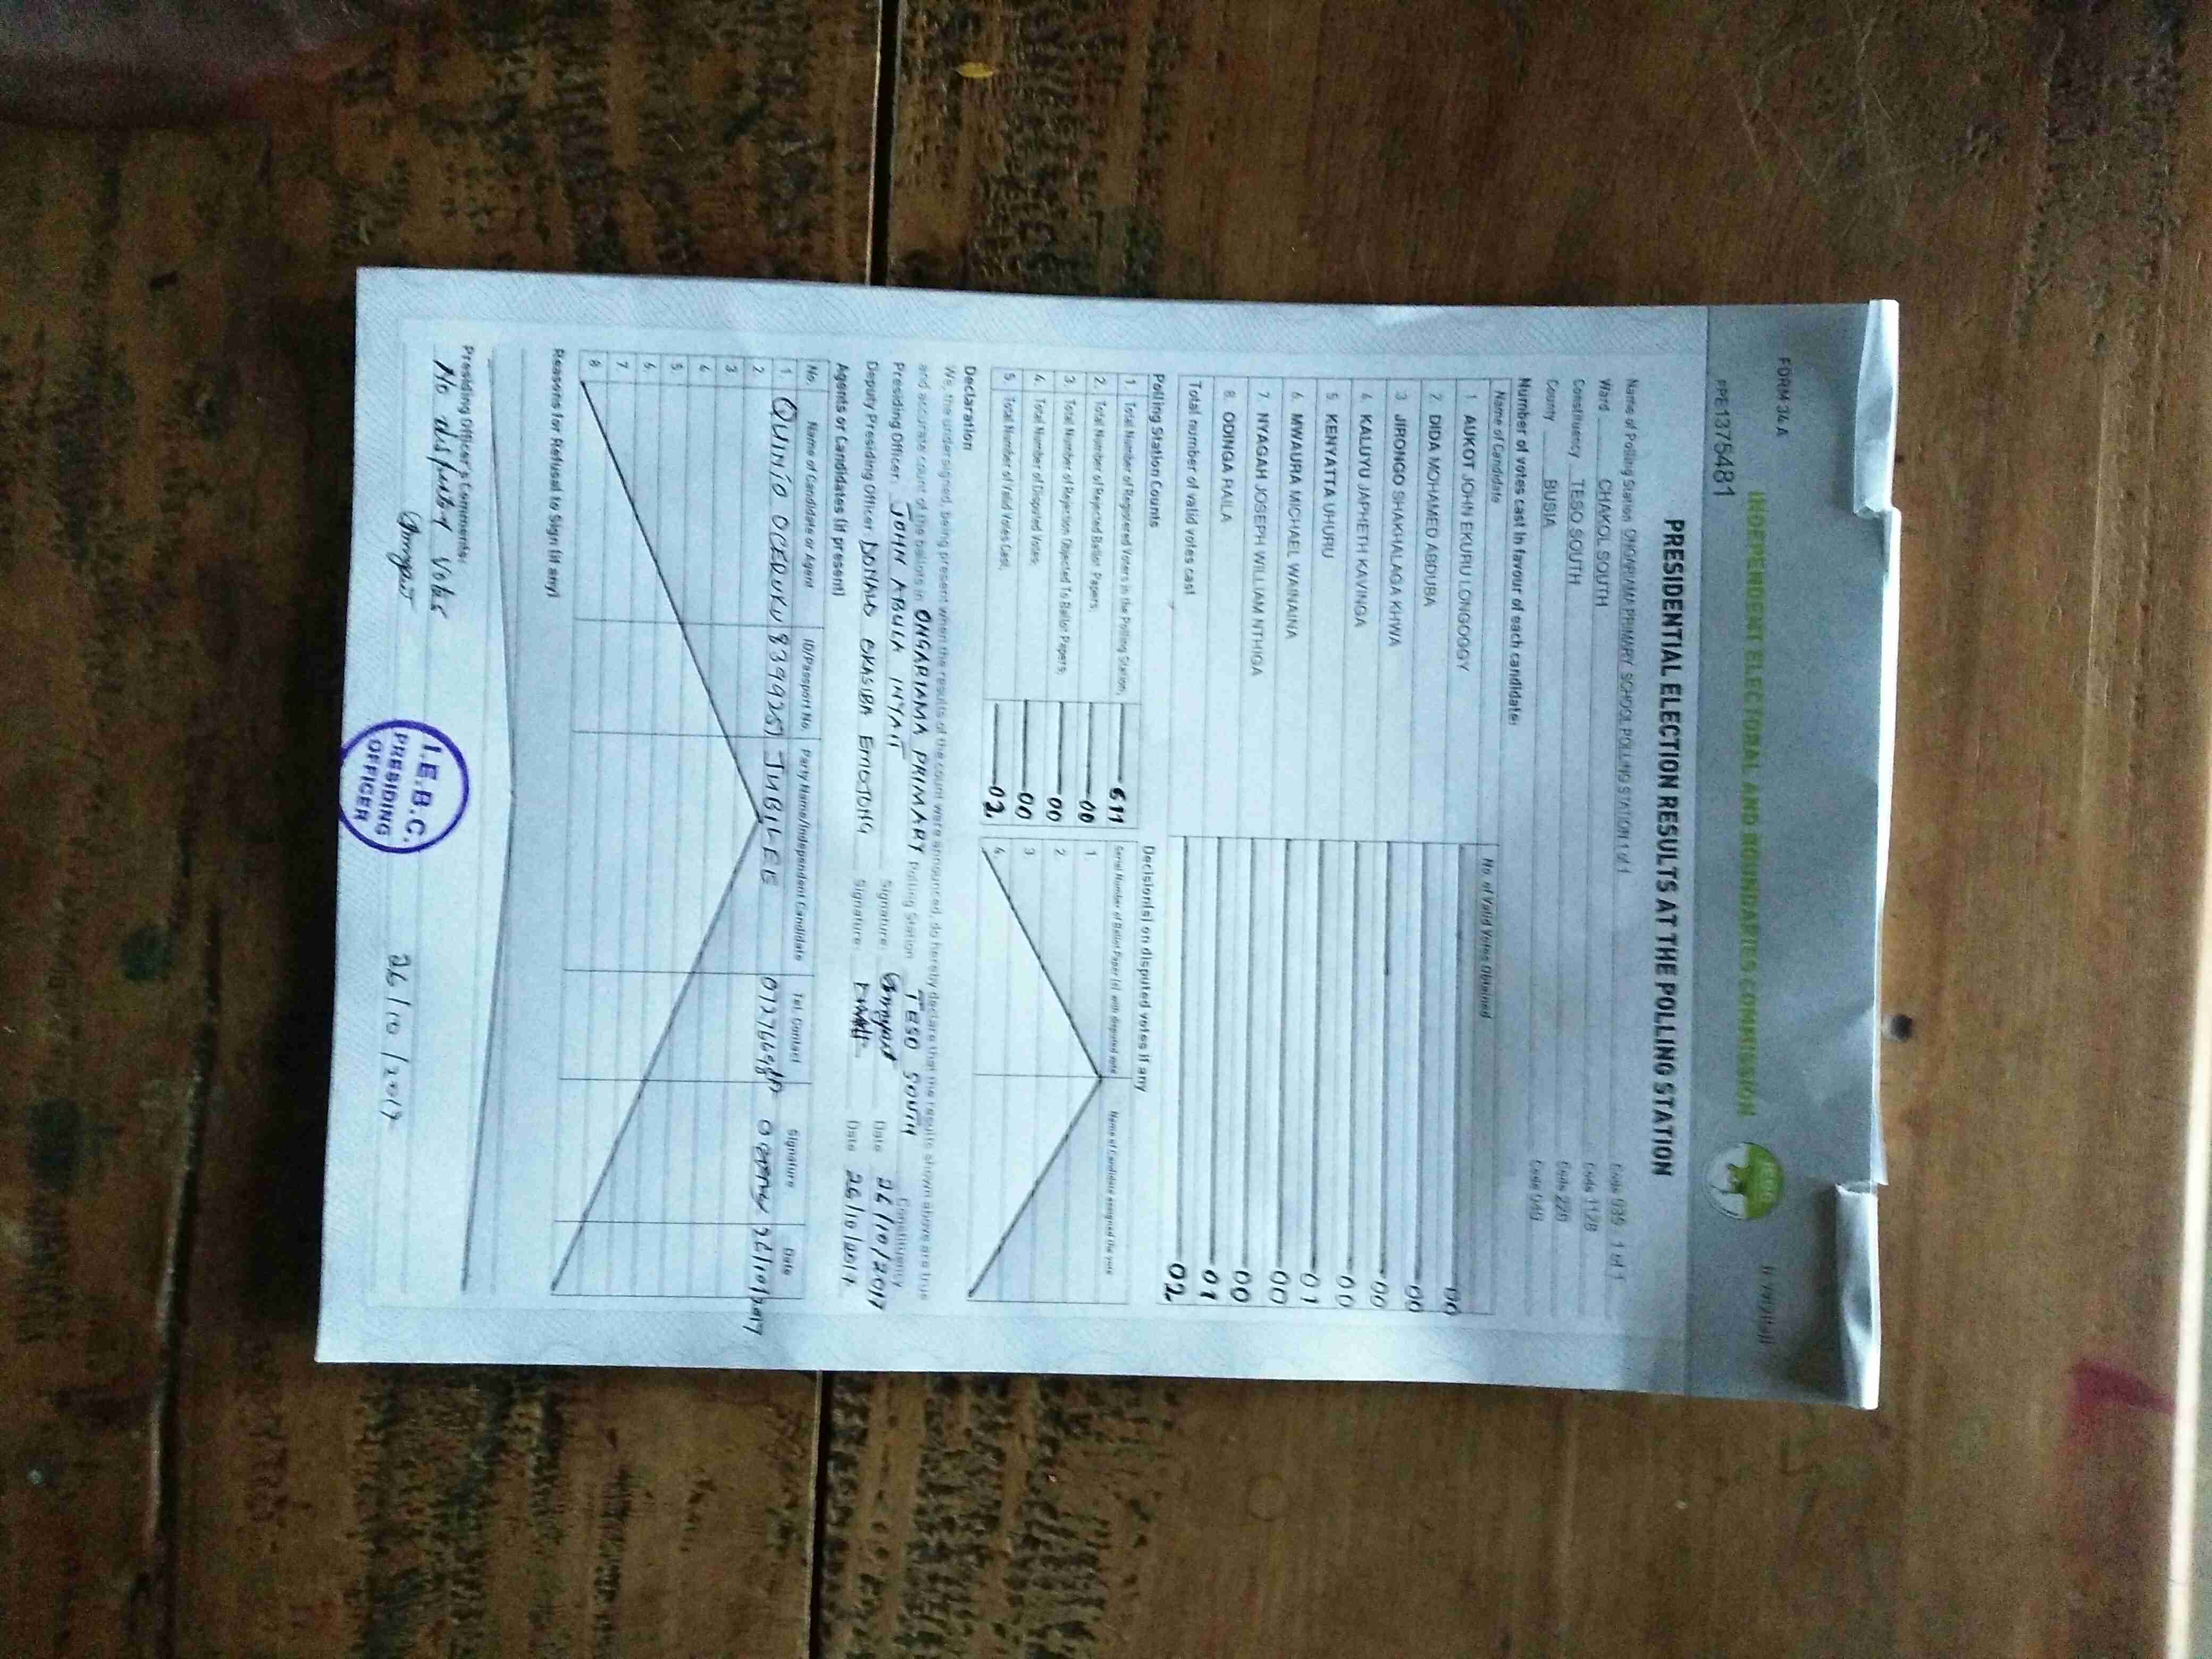 FORM 34A
INDEPENDENT ELECTORAL AND BOUNDARIES COMMISSION
PPE1375481
IEBC
PRESIDENTIAL ELECTION RESULTS AT THE POLLING STATION
Name of Polling Station ONGARIAMA PRIMARY SCHOOL POLLING STATION 1 of 1 Code 039 1 of 1
Ward CHAKOL SOUTH Code 1128
Constituency TESO SOUTH Code 226
County BUSIA Code 040
Number of votes cast in favour of each candidate:
Name of Candidate No. of Valid Votes Obtained
1 AUKOT JOHN EKURU LONGOGGY 00
2. DIDA MOHAMED ABDUBA 00
3 JIRONGO SHAKHALAGA KHWA 00
4 KALUYU JAPHETH KAVINGA 00
5 KENYATTA UHURU 01
6 MWAURA MICHAEL WAINAINA 00
7. NYAGAH JOSEPH WILLIAM NTHIGA 00
8. ODINGA RAILA 01
Total number of valid votes cast 02
Polling Station Counts
1. Total Number of Registered Voters in the Polling Station; 611
2. Total Number of Rejected Ballot Papers; 00
3. Total Number of Rejection Objected To Ballot Papers; 00
4. Total Number of Disputed Votes; 00
5. Total Number of Valid Votes Cast; 02
Decision(s) on disputed votes if any
Serial Number of Ballot Paper(s) with disputed vote Name of Candidate assigned the vote
1
2
3
4
Declaration
We, the undersigned, being present when the results of the count were announced, do hereby declare that the results shown above are true
and accurate count of the ballots in ONGARIAMA PRIMARY Polling Station TESO SOUTH Constituency
Presiding Officer: JOHN ABULA INYAIT Signature: Date 26/10/2017
Deputy Presiding Officer DONALD EKASIBA EMOJONG Signature: Date 26/10/2017
Agents or Candidates (if present)
No. Name of Candidate or Agent ID/Passport No. Party Name/Independent Candidate Tel. Contact Signature Date
1 JUBILEE 26/10/2017
2
3
4
5
6
7
8
Reasons for Refusal to Sign (if any)
Presiding Officer's Comments:
No disputed votes
I.E.B.C.
PRESIDING
OFFICER
26/10/2017